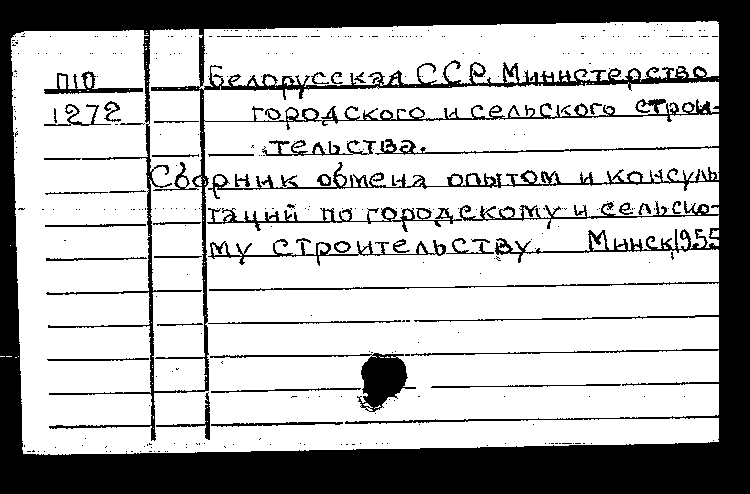 П10
Белорусская ССР, Министерство
1272 городского и сельского строи-
тельства.
Сборник обмена опытом и консуль
таций по городскому и сельско-
му строительству. Минск, 1955